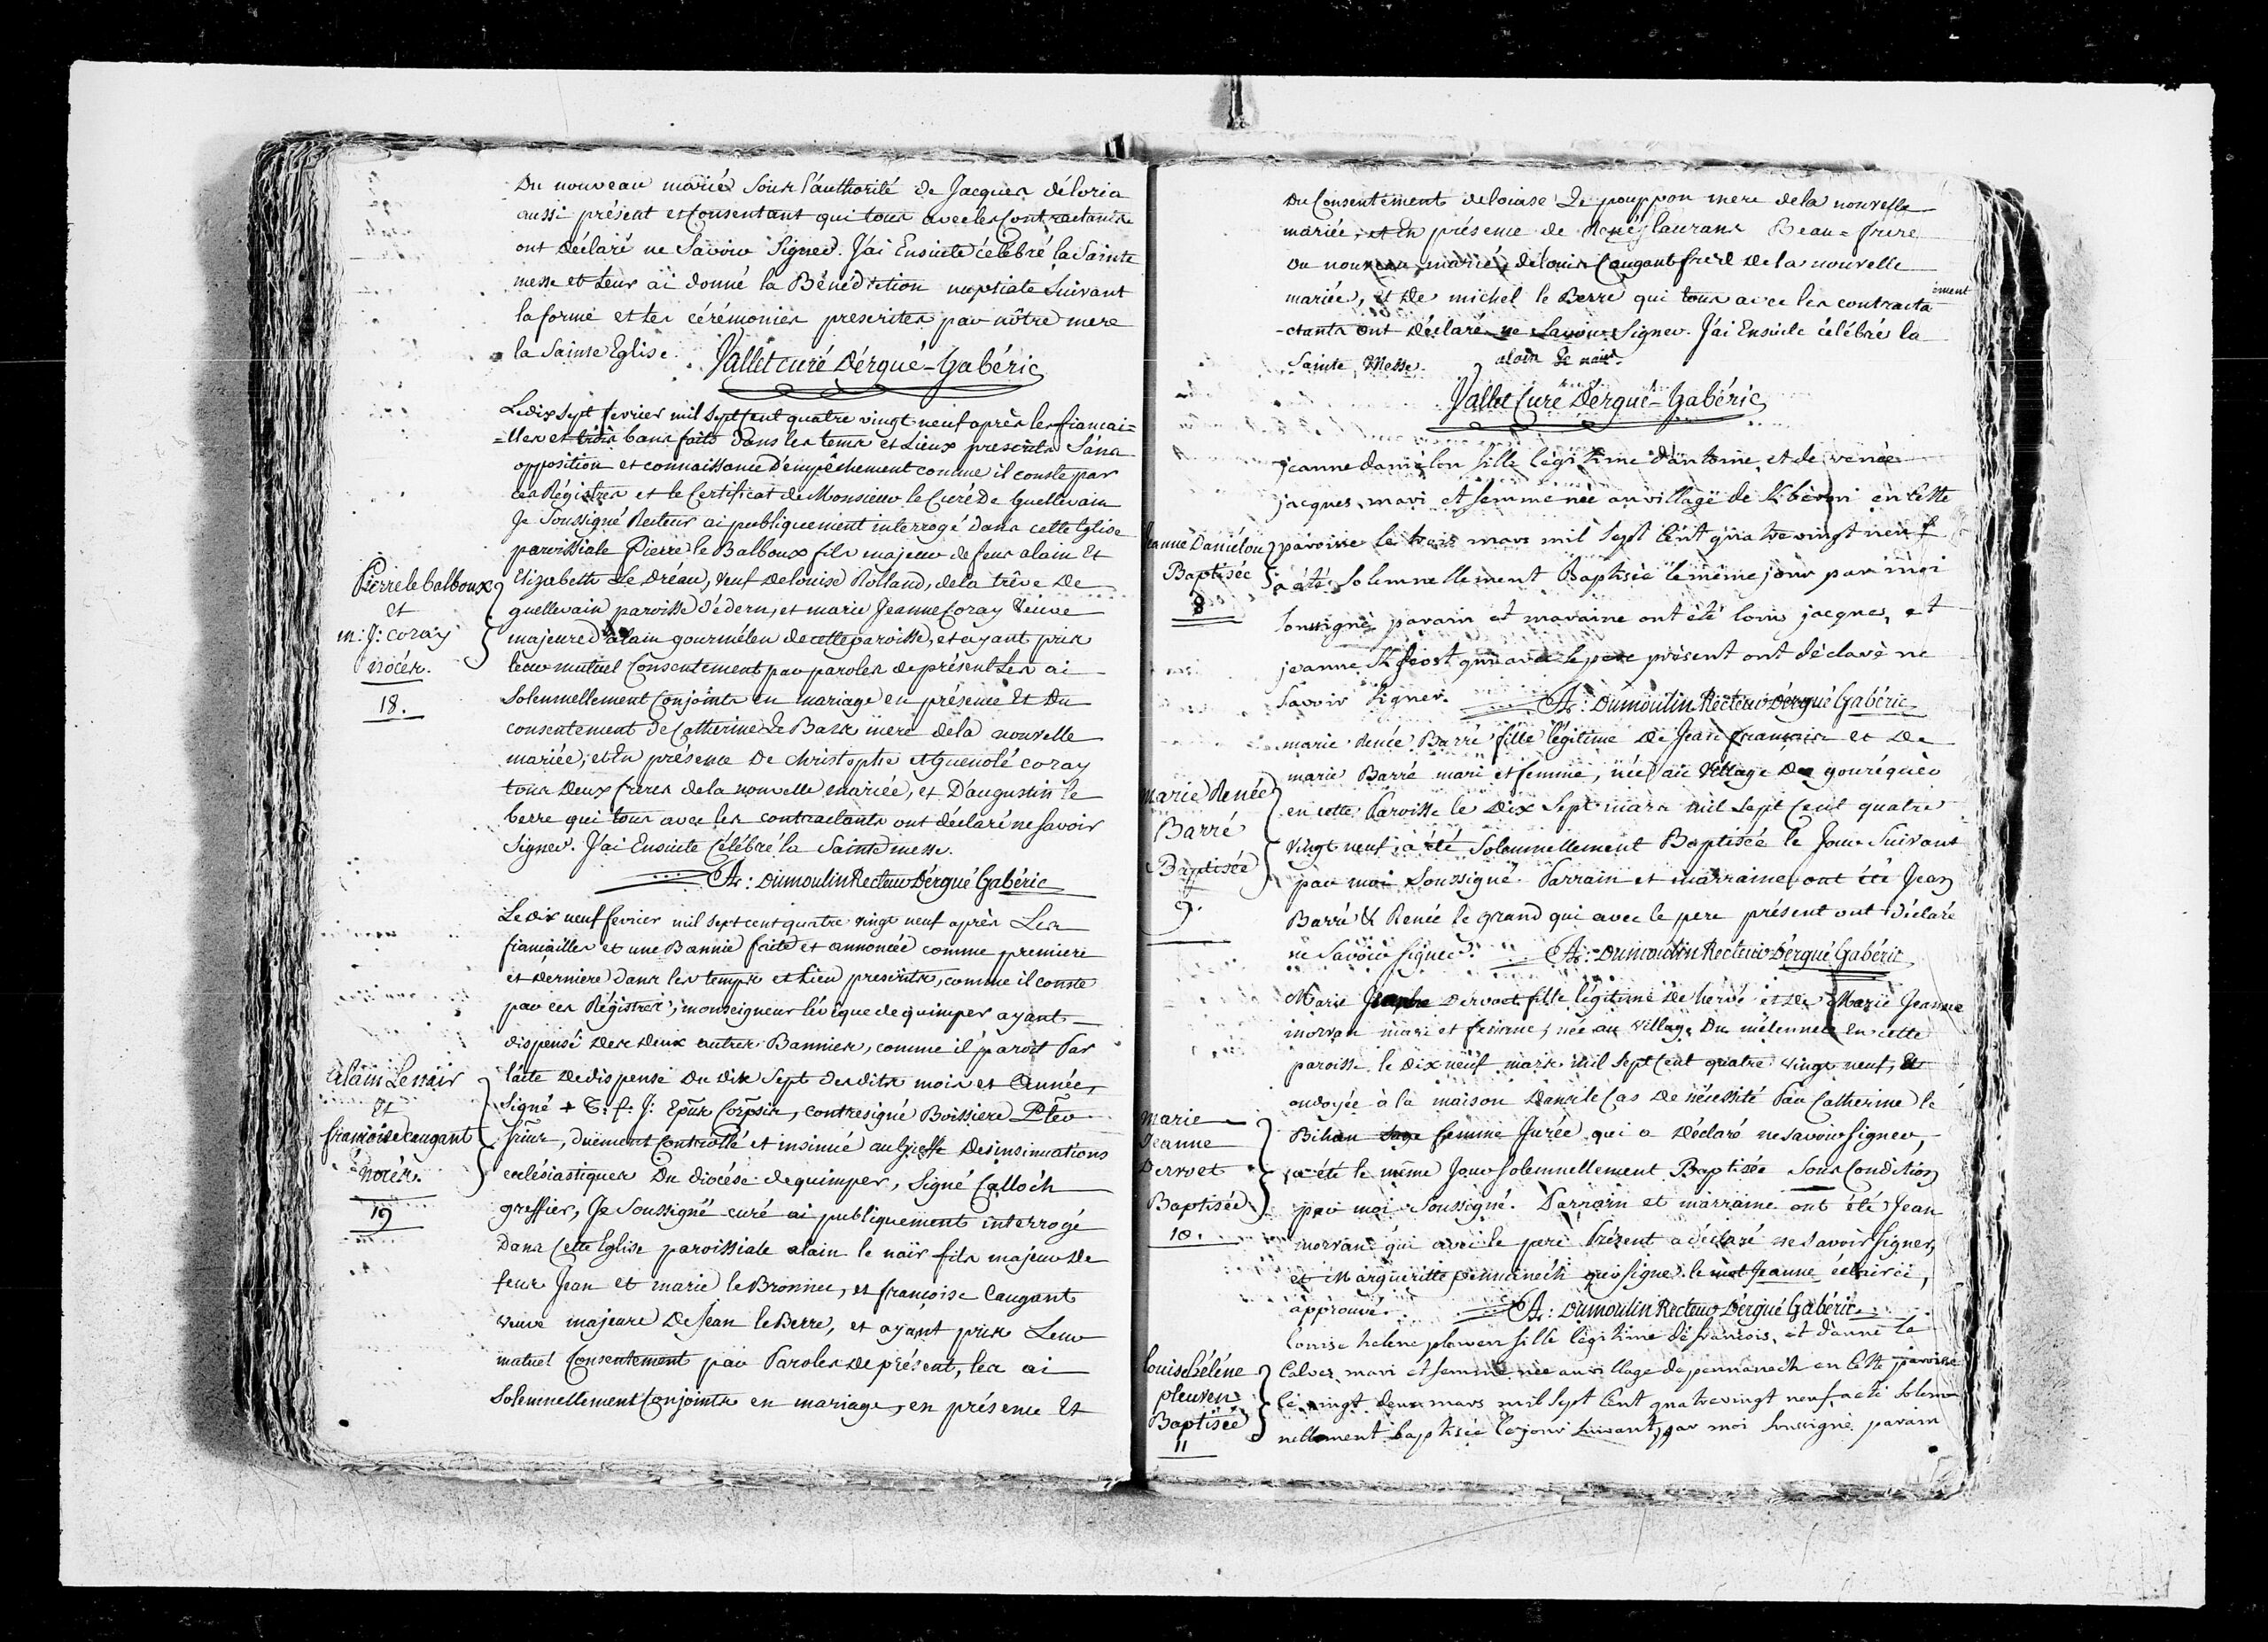 Du nouveau marié sous l'authorité de Jacques déloria
aussi présent et Consentant qui tous avec les Contractants
ont déclaré ne Savoir Signer. J'ai Ensuite célébré la Sainte
messe et Leur ai donné la Bénédiction nuptiale Suivant
la forme et les cérémonies prescrites par nôtre mere
la Sainte Eglise. Vallet curé D'ergué-Gabéric
Le dix sept fevrier mil Sept Cent quatre vingt neuf après les fiancai=
=lles et trois bans faits Dans les tems et Lieux prescrits Sans
opposition et connaissance d'empêchement comme il conste par
ces Régistres et le Certificat de Monsieur le Curé De Guellevain
Je Soussigné Recteur ai publiquement interrogé Dans cette Eglise
paroissiale Pierre le Balboux fils majeur de feus alain Et
Pierre le balboux
et
m: J: coray
nocés.
18.
Elizabeth Le Dréau, Veuf De Louise Rolland, de la trêve De
guellevain paroisse d'édern, et marie Jeanne Coray Veuve
majeure d'alain gourmélen de cette paroisse, et ayant pris
leur mutuel Consentement par paroles de présent Les ai
Solemnellement Conjoints en mariage en présence Et Du
consentement De Catherine Le Bask mere de la nouvelle
mariée, et En présence De christophe et Guenolé coray
tous Deux freres de la nouvelle mariée, et D'augustin le
berre qui tous avec les contractants ont déclaré ne Savoir
Signer. J'ai Ensuite Célébré la Sainte messe.
A: Dumoulin Recteur D'érgué Gabéric
Le dix neuf fevrier mil sept cent quatre vingt neuf après Les
fiancailles et une Bannie faite et annoncée comme premiere
et Derniere Dans les temps et Lieu prescrits, comme il conste
par ces Régistres, monseigneur l'évêque de quimper ayant
dispensé Des Deux autres Bannies, comme il paroit Par
alain Le naïr
Et
francoise caugant
nocés.
19
l'acte De dispense Du Dix Sept desdits mois et Année,
Signé + T: f: J: Epūs Corp̄sis, contresigné Boissiere Pter
, duement Controllé et insinué au Greffe Des insinuations
ecclésiastiques Du diocése de quimper, Signé Calloc'h
greffier, Je Soussigné curé ai publiquement interrogé
Dans Cette Eglise paroissiale alain le naïr fils majeur De
feus Jean et marie le Bronnec, et francoise Caugant
veuve majeure De Jean le Berre, et ayant pris Leur
mutuel Consentement par Paroles De présent, les ai
Solemnellement Conjoints en mariage, en présence Et
Du Consentement de Louise Le pouppon mere de la nouvelle
mariée, et En présence de René Laurans Beau=frere
Du nouveau marié, de Louis Caugant frere De la nouvelle
mariée, et De michel le Berre qui tous avec les contracta
-ctants ont Déclaré ne Savoir Signer. J'ai Ensuite célébré la
Sainte Messe. alain Le naïr.
Vallet Curé D'ergué-Gabéric
jeanne daniélou fille légitime d'antoine, et de renée
jacques, mari et femme née au village de K/ en Cette
Jeanne Daniélou
Baptisée
8
paroisse le trois mars mil Sept Cent quatre vingt neuf
a été Solemnellement Baptisée le même jour par moi
Soussigné paruin et maraine ont été louis jacques, et
jeanne qui avec le pere présent ont déclaré ne
Savoir Signer. A: Dumoulin Recteur D'érgué Gabéric
marie Renée Barré fille légitime De Jean francois et De
marie Renée
Barré
Baptisée
9.
marie Barré mari et femme, née au Village De gouréquèr
en cette Paroisse le Dix Sept mars mil Sept Cent quatre
Vingt neuf a été Solemnellement Baptisée le Jour Suivant
par moi Soussigné. Parrain et marraine ont été Jean
Barré & Renée le grand qui avec le pere présent ont déclaré
ne Savoir signer. A: Dumoulin Recteur D'érgué Gabéric
Marie Jeanne Dervoet fille légitime De hervé et De Marie Jeanne
morvan mari et femme, née au Village Du mélennec En cette
paroisse le Dix neuf mars mil Sept Cent quatre Vingt neuf, Et
ondoyée à la maison Dans le Cas De nécessité Par Catherine le
marie
Jeanne
Dervoet
Baptisée
10.
Bihan Sage femme Jurée qui a Déclaré ne savoir Signer,
a été le même Jour Solemnellement Baptisée Sous Condition
par moi Soussigné. Parrain et marraine ont été Jean
morvan qui avec le pere Présent a déclaré ne savoir Signer,
et Margueritte pennanech qui signe. le mot Jeanne éclairci,
approuvé. A: Dumoulin Recteur D'érgué Gabéric.
louise helene pleuven fille légitime de francois, et d'anne le
louise héléne
pleuven
Baptisée
11
Calvez, mari et femme née au village de pennanech en Cette paroisse
le vingt deux mars mil Sept Cent quatre vingt neuf, a été Solem
nellement baptisée le jour suivant, par moi Soussigné parain